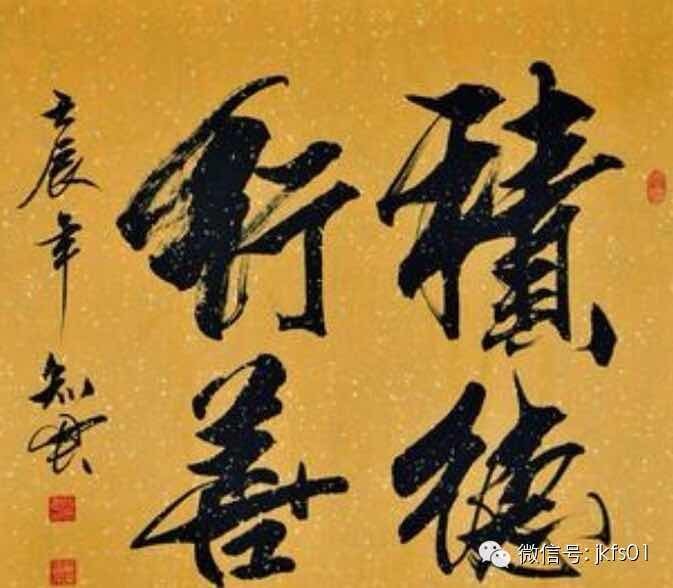 積德
行善
壬辰年
微信号: jkfs01